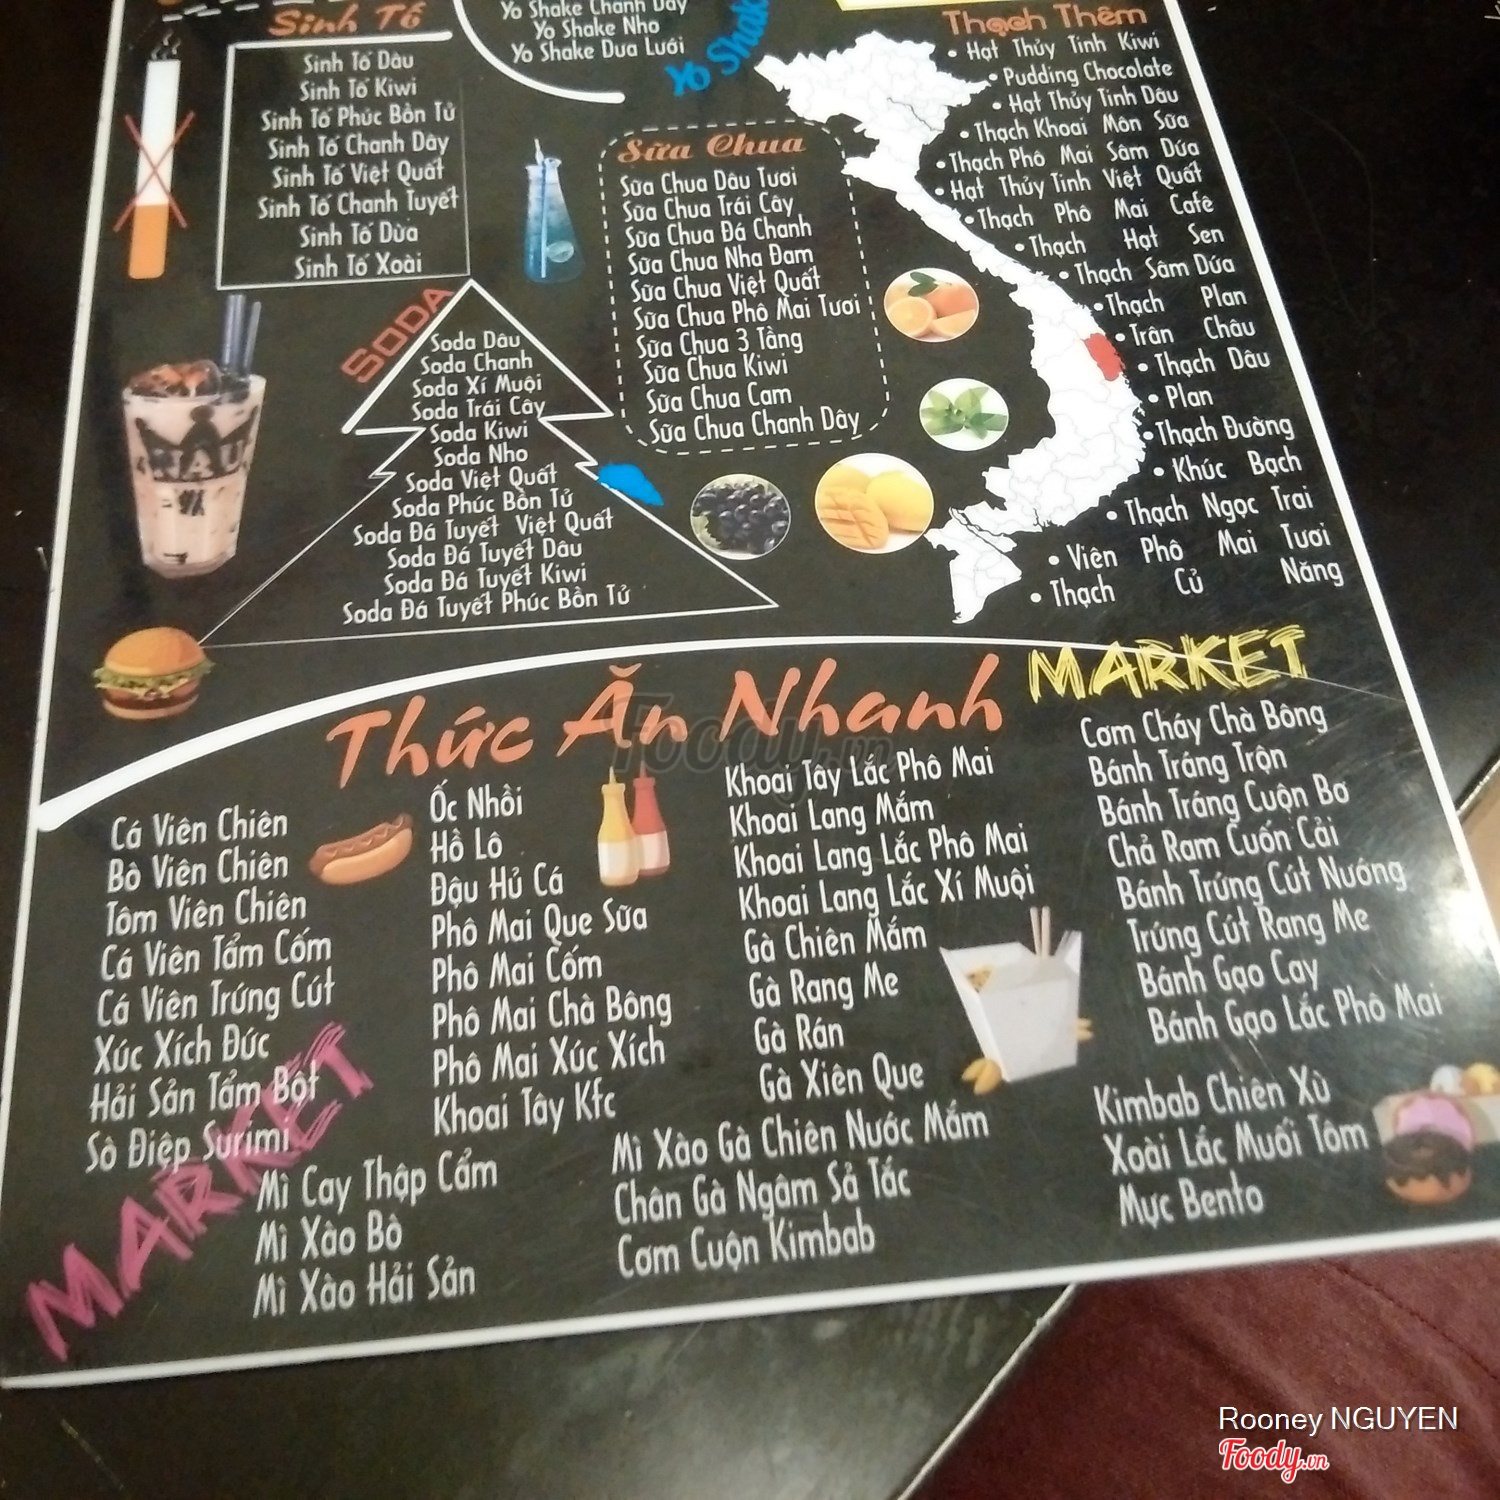 Sinh Tố
Sinh Tố Dâu
Sinh Tố Kiwi
Sinh Tố Phúc Bồn Tử
Sinh Tố Chanh Dây
Sinh Tố Việt Quất
Sinh Tố Chanh Tuyết
Sinh Tố Dừa
Sinh Tố Xoài
Yo Shake Chanh Dây
Yo Shake Nho
Yo Shake Dưa Lưới
Yo Shake
Sữa Chua
Sữa Chua Dâu Tươi
Sữa Chua Trái Cây
Sữa Chua Đá Chanh
Sữa Chua Nha Đam
Sữa Chua Việt Quất
Sữa Chua Phô Mai Tươi
Sữa Chua 3 Tầng
Sữa Chua Kiwi
Sữa Chua Cam
Sữa Chua Chanh Dây
Thạch Thêm
• Hạt Thủy Tinh Kiwi
• Pudding Chocolate
• Hạt Thủy Tinh Dâu
• Thạch Khoai Môn Sữa
• Thạch Phô Mai Sâm Dứa
• Hạt Thủy Tinh Việt Quất
• Thạch Phô Mai Cafè
• Thạch Hạt Sen
• Thạch Sâm Dứa
• Thạch Plan
• Trân Châu
• Thạch Dâu
• Plan
• Thạch Đường
• Khúc Bạch
• Thạch Ngọc Trai
• Viên Phô Mai Tươi
• Thạch Củ Năng
SODA
Soda Dâu
Soda Chanh
Soda Xí Muội
Soda Trái Cây
Soda Kiwi
Soda Nho
Soda Việt Quất
Soda Phúc Bồn Tử
Soda Đá Tuyết Việt Quất
Soda Đá Tuyết Dâu
Soda Đá Tuyết Kiwi
Soda Đá Tuyết Phúc Bồn Tử
Thức Ăn Nhanh
MARKET
Cá Viên Chiên
Bò Viên Chiên
Tôm Viên Chiên
Cá Viên Tẩm Cốm
Cá Viên Trứng Cút
Xúc Xích Đức
Hải Sản Tẩm Bột
Sò Điệp Surimi
Ốc Nhồi
Hồ Lô
Đậu Hủ Cá
Phô Mai Que Sữa
Phô Mai Cốm
Phô Mai Chà Bông
Phô Mai Xúc Xích
Khoai Tây Kfc
Khoai Tây Lắc Phô Mai
Khoai Lang Mắm
Khoai Lang Lắc Phô Mai
Khoai Lang Lắc Xí Muội
Gà Chiên Mắm
Gà Rang Me
Gà Rán
Gà Xiên Que
Cơm Cháy Chà Bông
Bánh Tráng Trộn
Bánh Tráng Cuộn Bơ
Chả Ram Cuốn Cải
Bánh Trứng Cút Nướng
Trứng Cút Rang Me
Bánh Gạo Cay
Bánh Gạo Lắc Phô Mai
Mì Cay Thập Cẩm
Mì Xào Bò
Mì Xào Hải Sản
Mì Xào Gà Chiên Nước Mắm
Chân Gà Ngâm Sả Tắc
Cơm Cuộn Kimbab
Kimbab Chiên Xù
Xoài Lắc Muối Tôm
Mực Bento
MARKET
Foody.vn
Rooney NGUYEN
Foody.vn